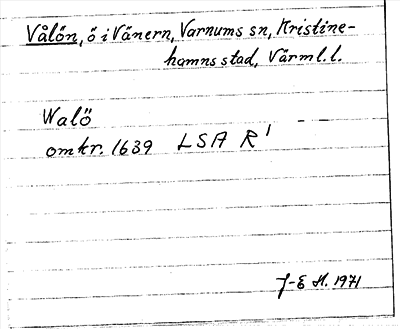 Vålön, ö i Vänern, Varnums sn, Kristine-
hamns stad, Värml.l.
Walö
omkr. 1639 LSA R¹
J-E H. 1971